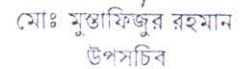 মোঃ মুস্তাফিজুর রহমান
উপসচিব